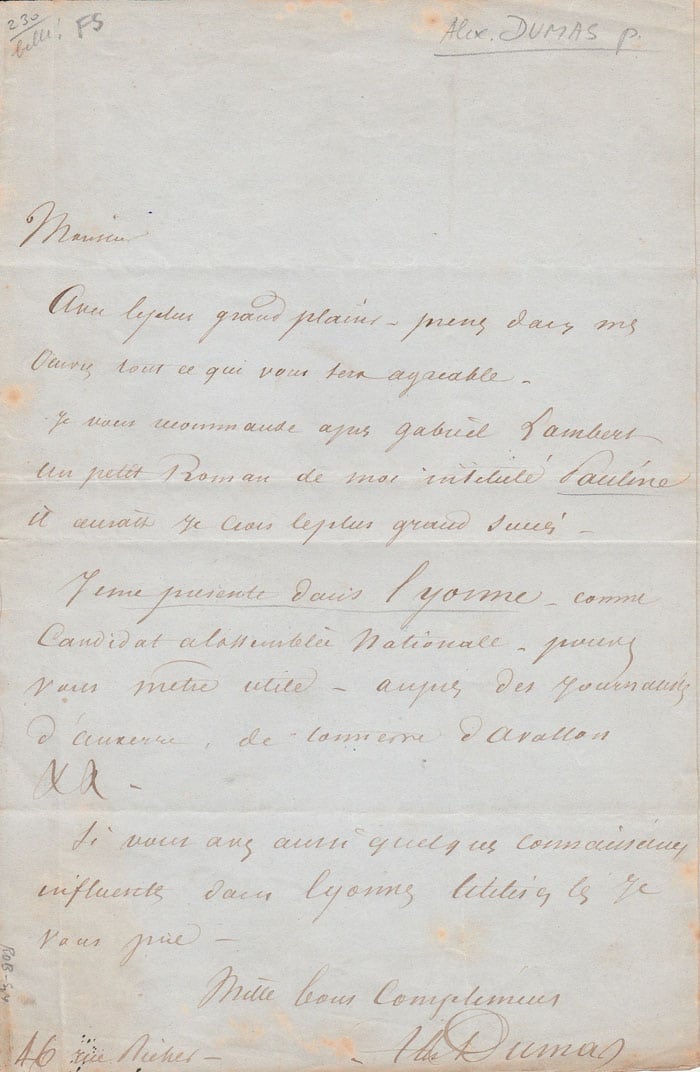 230
belle! FS
Alex. DUMAS p.
Monsieur
Avec le plus grand plaisir - prenez dans mes
Oeuvres tout ce qui vous sera agreable -
Je vous recommande apres gabriel Lambert
un petit Roman de moi intitulé Pauline
il aurait je crois le plus grand succès -
Je me presente dans l'yonne - comme
Candidat a l'assemblée Nationale - pouvez
vous m'etre utile - aupres des journaux
d'auxerre, de tonnerre d'avallon
&& -
Si vous avez aussi quelques connaissances
influentes dans l'yonne utilisez les je
vous prie -
Mille bons Compliments
46 rue Richer -
Alex Dumas
ROB-